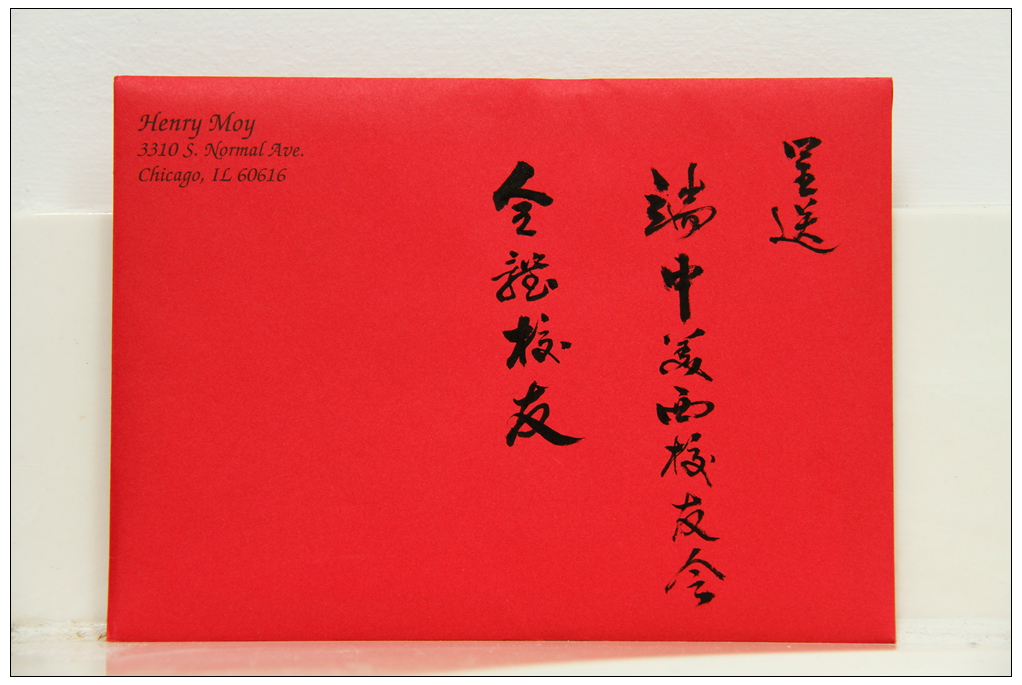 Henry Moy
3310 S. Normal Ave.
Chicago, IL 60616
呈送
端中美西校友会
全體校友